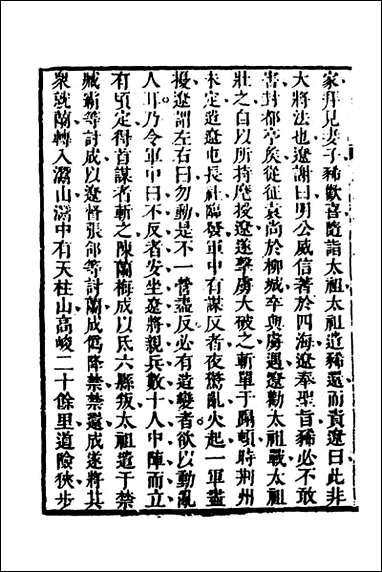 家拜見妻子豨歡喜隨詣太祖太祖遣豨還而責遼曰此非
大將法也遼謝曰明公威信著於四海遼奉聖旨豨必不敢
害封都亭矦從征袁尚於柳城卒與虜遇遼勸太祖戰太祖
壯之自以所持麾授遼遂擊虜大破之斬單于蹋頓時荆州
未定遣遼屯長社臨發軍中有謀反者夜驚亂火起一軍盡
擾遼謂左右曰勿動是不一營盡反必有造變者欲以動亂
人耳乃令軍中曰不反者安坐遼將親兵數十人中陣而立
有頃定得首謀者斬之陳蘭梅成以氐六縣叛太祖遣于禁
臧霸等討成以遼督張郃等討蘭成僞降禁禁還成遂將其
衆就蘭轉入灊山灊中有天柱山高峻二十餘里道險狹步